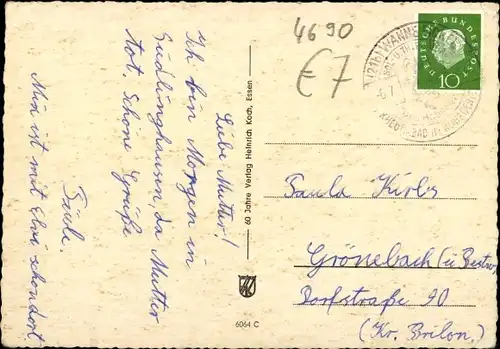 4690
€7
DEUTSCHE BUNDESPOST
10
(21b) WANNE
Liebe Mutter!
Ich bin Morgen in
Südlinghausen, da Mutter
tot. Schöne Grüße
Paula.
Mia ist mit Elsi schon dort
60 Jahre Verlag Heinrich Koch, Essen
6064 C
Paula Kirbs
Grönebach (ü Bestwi
Dorfstraße 90
(Kr. Brilon.)